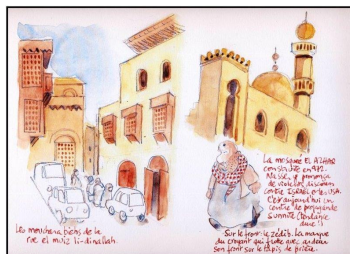 Les moucharabiehs de la
rue el muiz li-dinallah.
La mosquée EL AZHAR
construite en 972.
NASSER y prononça
de violents discours
contre ISRAEL et les USA.
C'est aujourd'hui un
centre de propagande
sunnite
Sur le front le zébib. La marque
du croyant qui frotte avec ardeur
son front sur le tapis de prière.